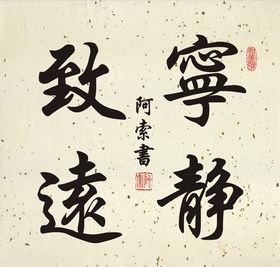 寧靜
致遠
阿索書